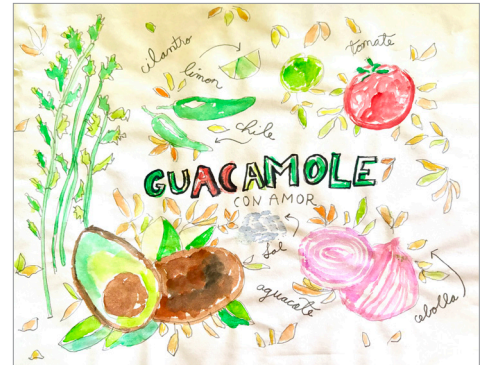 cilantro
limon
tomate
chile
GUACAMOLE
CON AMOR
sal
aguacate
cebolla